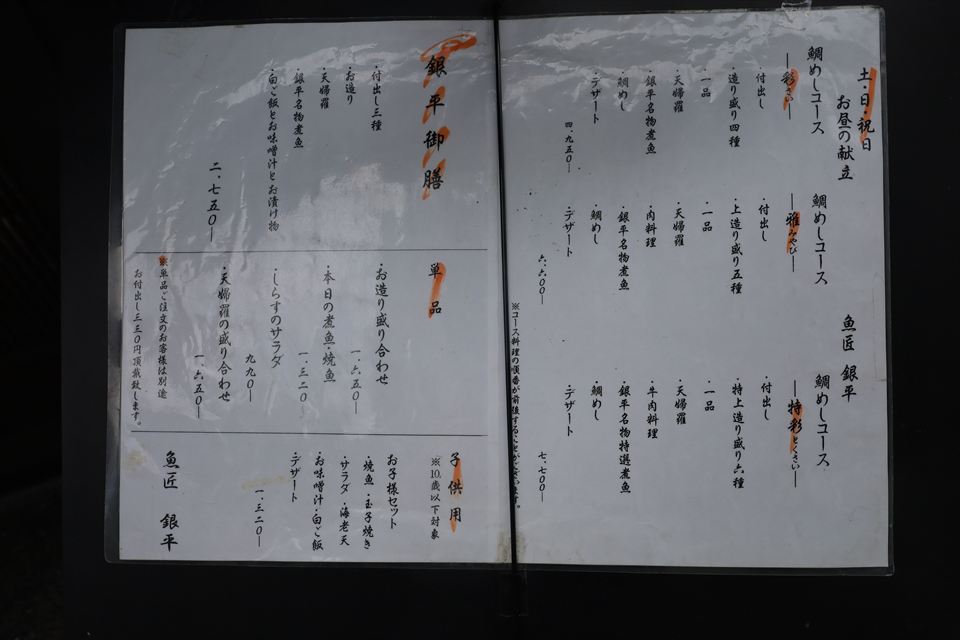 土・日・祝日
お昼の献立
魚匠 銀平
鯛めしコース
―彩さい―
・付出し
・造り盛り四種
・一品
・天婦羅
・銀平名物煮魚
・鯛めし
・デザート
四、九五〇―
鯛めしコース
―雅みやび―
・付出し
・上造り盛り五種
・一品
・天婦羅
・肉料理
・銀平名物煮魚
・鯛めし
・デザート
六、六〇〇―
鯛めしコース
―特彩とくさい―
・付出し
・特上造り盛り六種
・一品
・天婦羅
・牛肉料理
・銀平名物特選煮魚
・鯛めし
・デザート
七、七〇〇―
※コース料理の順番が前後することがございます。
銀平御膳
・付出し三種
・お造り
・天婦羅
・銀平名物煮魚
・白ご飯とお味噌汁とお漬け物
二、七五〇―
単品
・お造り盛り合わせ
一、六五〇―
・本日の煮魚・焼魚
一、三二〇―
・しらすのサラダ
九九〇―
・天婦羅の盛り合わせ
一、六五〇―
※単品ご注文のお客様は別途
お付出し三三〇円頂戴致します。
子供用
※10歳以下対象
お子様セット
・焼魚・玉子焼き
・サラダ・海老天
・お味噌汁・白ご飯
・デザート
一、三二〇―
魚匠 銀平